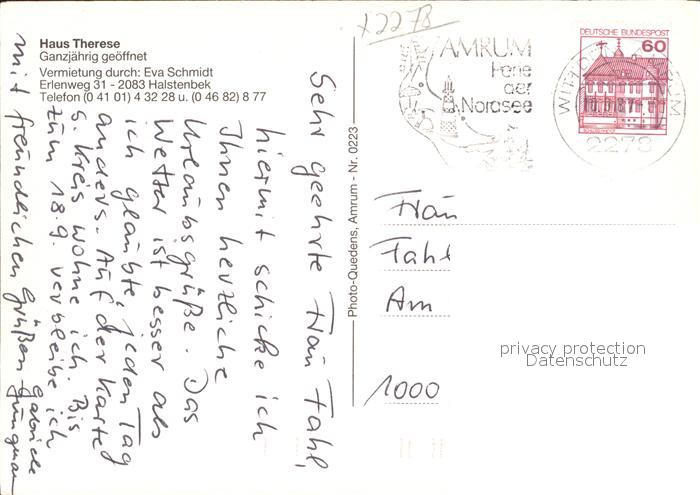 x2278
Haus Therese
Ganzjährig geöffnet
Vermietung durch: Eva Schmidt
Erlenweg 31 - 2083 Halstenbek
Telefon (0 41 01) 4 32 28 u. (0 46 82) 8 77
Sehr geehrte Frau Fahl,
hiermit schicke ich
Ihnen herzliche
Urlaubsgrüße. Das
Wetter ist besser als
ich glaubte, jeden Tag
anders. Auf der Karte
s. Kreis wohne ich. Bis
zum 18.9. verbleibe ich
mit freundlichen Grüßen
Gabriele
Photo-Quedens, Amrum - Nr. 0223
AMRUM
Ferie
der
Nordsee
DEUTSCHE BUNDESPOST
60
2278
Frau
Fahl
Am
1000
privacy protection
Datenschutz